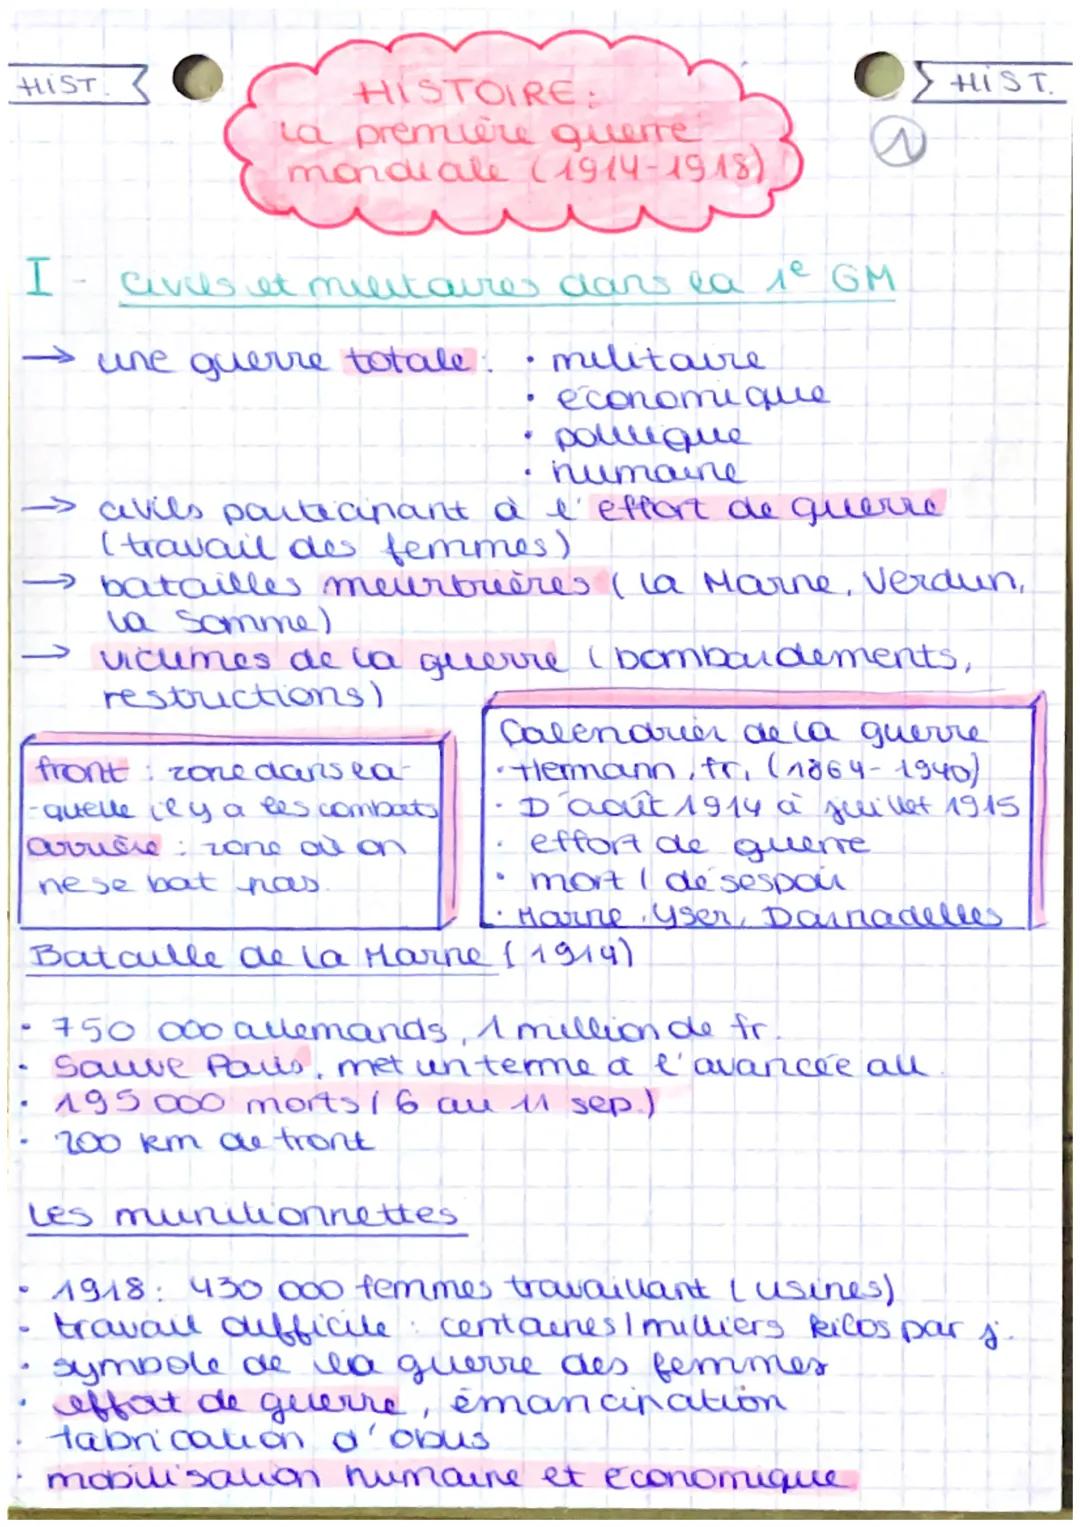 HIST.
HIST.
1
HISTOIRE:
La première guerre
mondiale (1914-1918)
I - Civils et militaires dans la 1e GM
→ une guerre totale : • militaire
• économique
• politique
• humaine
→ civils participant à l'effort de guerre
(travail des femmes)
→ batailles meurtrières (la Marne, Verdun,
la Somme)
→ victimes de la guerre (bombardements,
restrictions)
front : zone dans la-
-quelle il y a les combats
arrière : zone où on
ne se bat pas.
Calendrier de la guerre
• Hermann, fr, (1864-1940)
• D'août 1914 à juillet 1915
• effort de guerre
• mort / désespoir
• Marne, Yser, Dardanelles
Bataille de la Marne (1914)
• 750 000 allemands, 1 million de fr.
• Sauve Paris, met un terme à l'avancée all.
• 195 000 morts (6 au 11 sep.)
• 200 km de front
Les munitionnettes
• 1918 : 430 000 femmes travaillant (usines)
• travail difficile : centaines / milliers kilos par j.
• symbole de la guerre des femmes
• effort de guerre, émancipation
• fabrication d'obus
• mobilisation humaine et économique